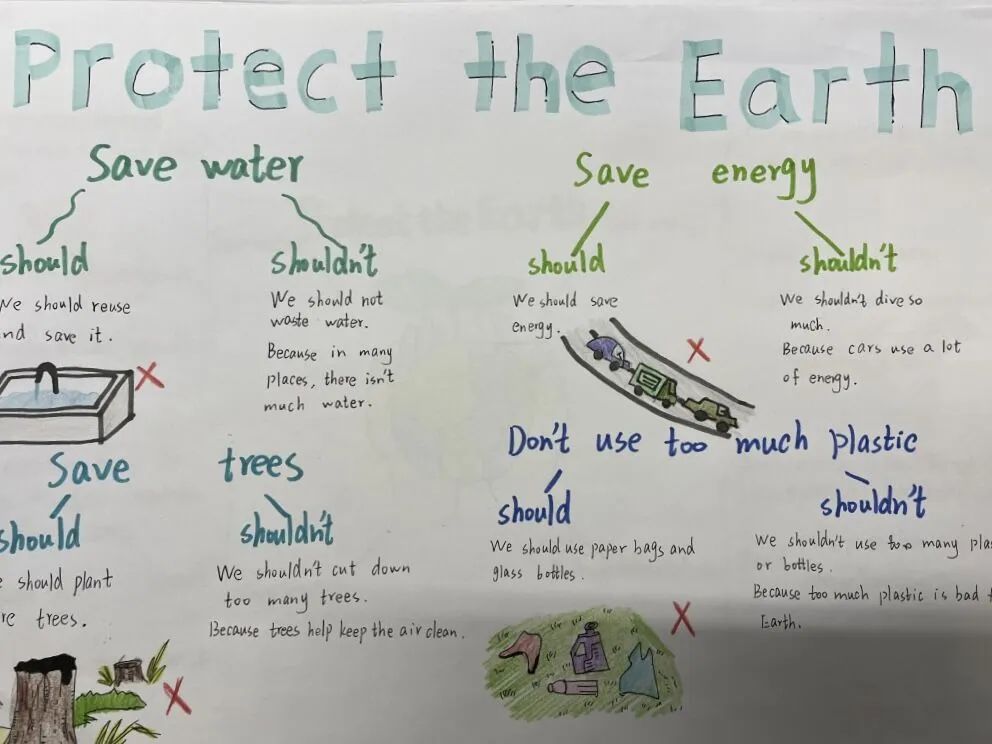 Protect the Earth
Save water
should
We should reuse
and save it.
shouldn't
We should not
waste water.
Because in many
places, there isn't
much water.
Save energy
should
We should save
energy.
shouldn't
We shouldn't dive so
much.
Because cars use a lot
of energy.
Save trees
should
should plant
trees.
shouldn't
We shouldn't cut down
too many trees.
Because trees help keep the air clean.
Don't use too much plastic
should
We should use paper bags and
glass bottles.
shouldn't
We shouldn't use too many
or bottles.
Because too much plastic is bad
Earth.